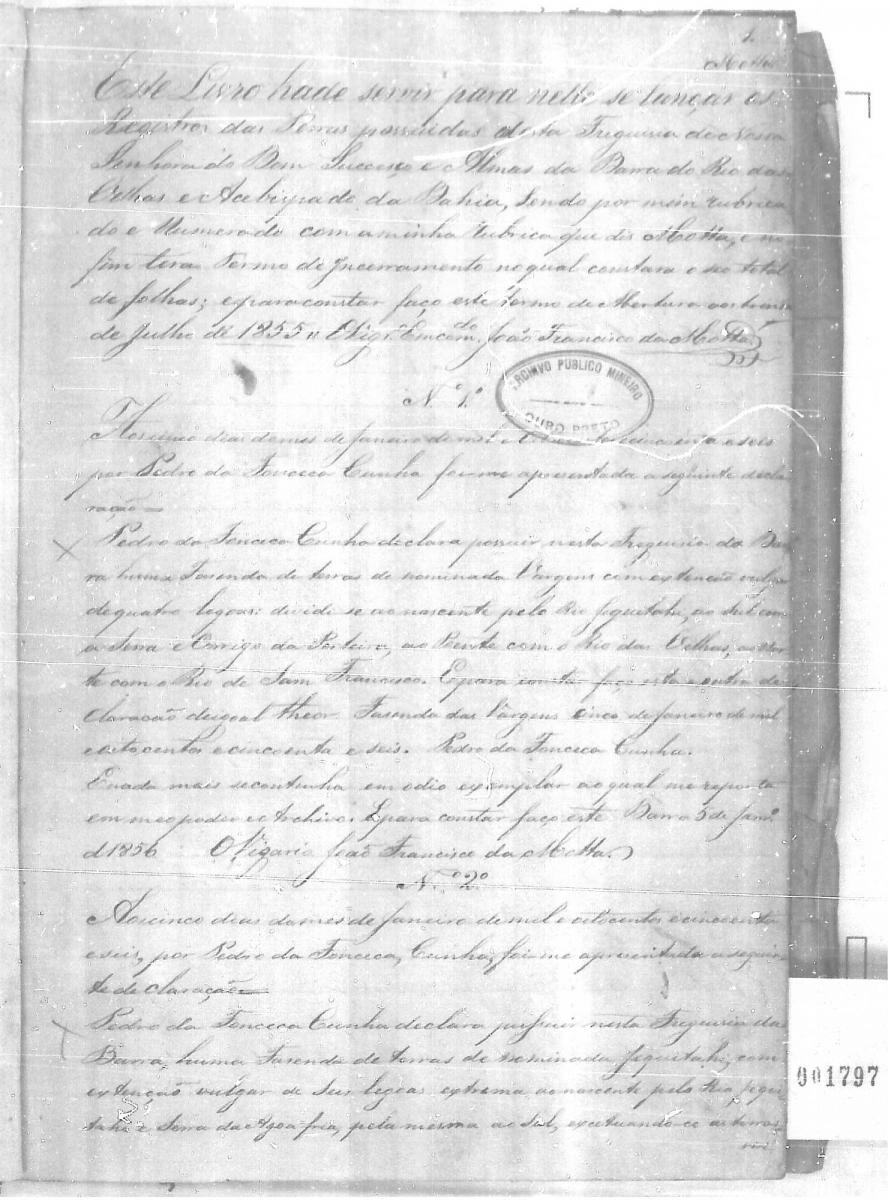 1.
Motta
Este Livro hade servir para nelle se lançar os
Registros das Terras possuidas desta Freguesia de Nossa
Senhora do Bom Successo e Almas da Barra do Rio das
Velhas e Acebispado da Bahia, sendo por mim rubrica
do e Numerado com a minha rubrica que dis Motta, e no
fim tera Termo de Incerramento no qual constara o seo total
de folhas; e para constar faço este Termo de Abertura aos
de Julho de 1855 O Vigr.º Emcom.do João Francisco da Motta.
ARCHIVO PUBLICO MINEIRO
OURO PRETO
N.º 1.º
Aos cinco dias do mes de Janeiro de mil e seis
por Pedro da Fonceca Cunha foi-me apresentada a seguinte decla
ração=
Pedro da Fonceca Cunha declara possuir nesta Freguisia da Bar
ra huma Fasenda de terras de nominada Vargens com extenção vulgar
de quatro legoas: divide se ao nascente pelo Rio Jiquitahi, ao Sul com
a Serra e Corrigo da Porteira, ao Poente com o Rio das Velhas, ao Nor
te com o Rio de Sam Francisco. E para constar faço esta e outra de
claração de igoal theor. Fasenda das Vargens cinco de Janeiro de mil
e oito centos e cincoenta e seis. Pedro da Fonceca Cunha.
E nada mais se continha em o dio exemplar ao qual me reporto
em meo poder e Archivo. E para constar faço este Barra 5 de Janr.º
d 1856 O Vigario João Francisco da Motta.
N.º 2.º
Aos cinco dias do mes de Janeiro de mil e oito centos e cincoenta
e seis, por Pedro da Fonceca, Cunha, foi-me apresentada a seguin
te de claração=
Pedro da Fonceca Cunha declara possuir nesta Freguisia da
Barra, huma Fasenda de terras de nominada Jiquitahi, com
extenção vulgar de Seis legoas extrema ao nascente pelo Rio Jiqui
tahi e Serra da Agoa fria, pela mesma ao Sul, excetuando-ce as terras
001797